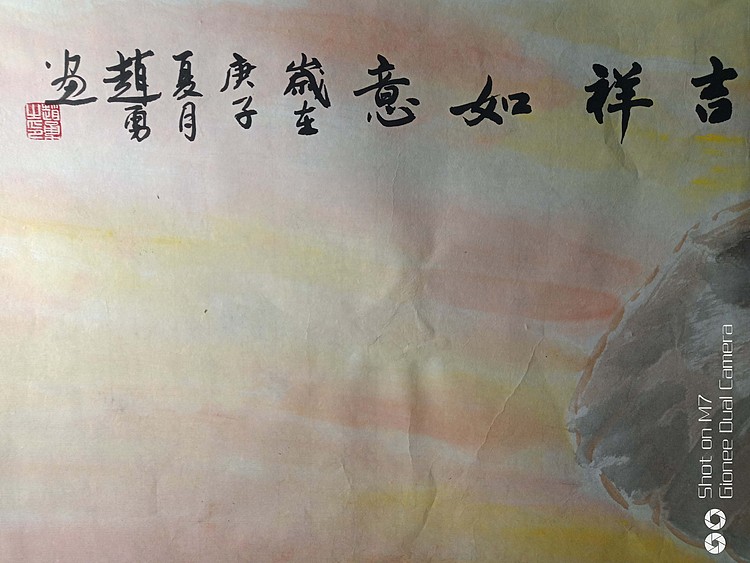 吉祥如意
歲在
庚子
夏月
趙勇
畫
Shot on M7
Gionee Dual Camera